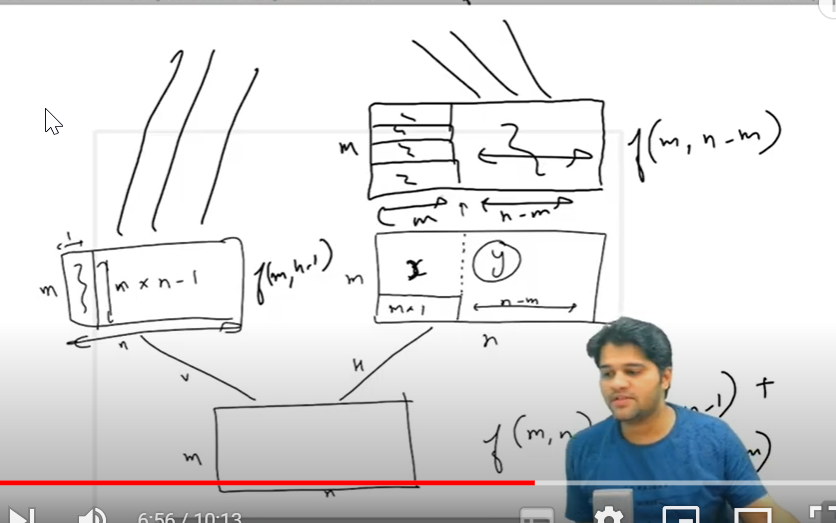 m
f(m, n-m)
m
n-m
1
m
m × n-1
f(m, n-1)
m
x
y
m×1
n-m
n
n
V
H
f(m, n)
-1) +
m)
m
n
6:56 / 10:13